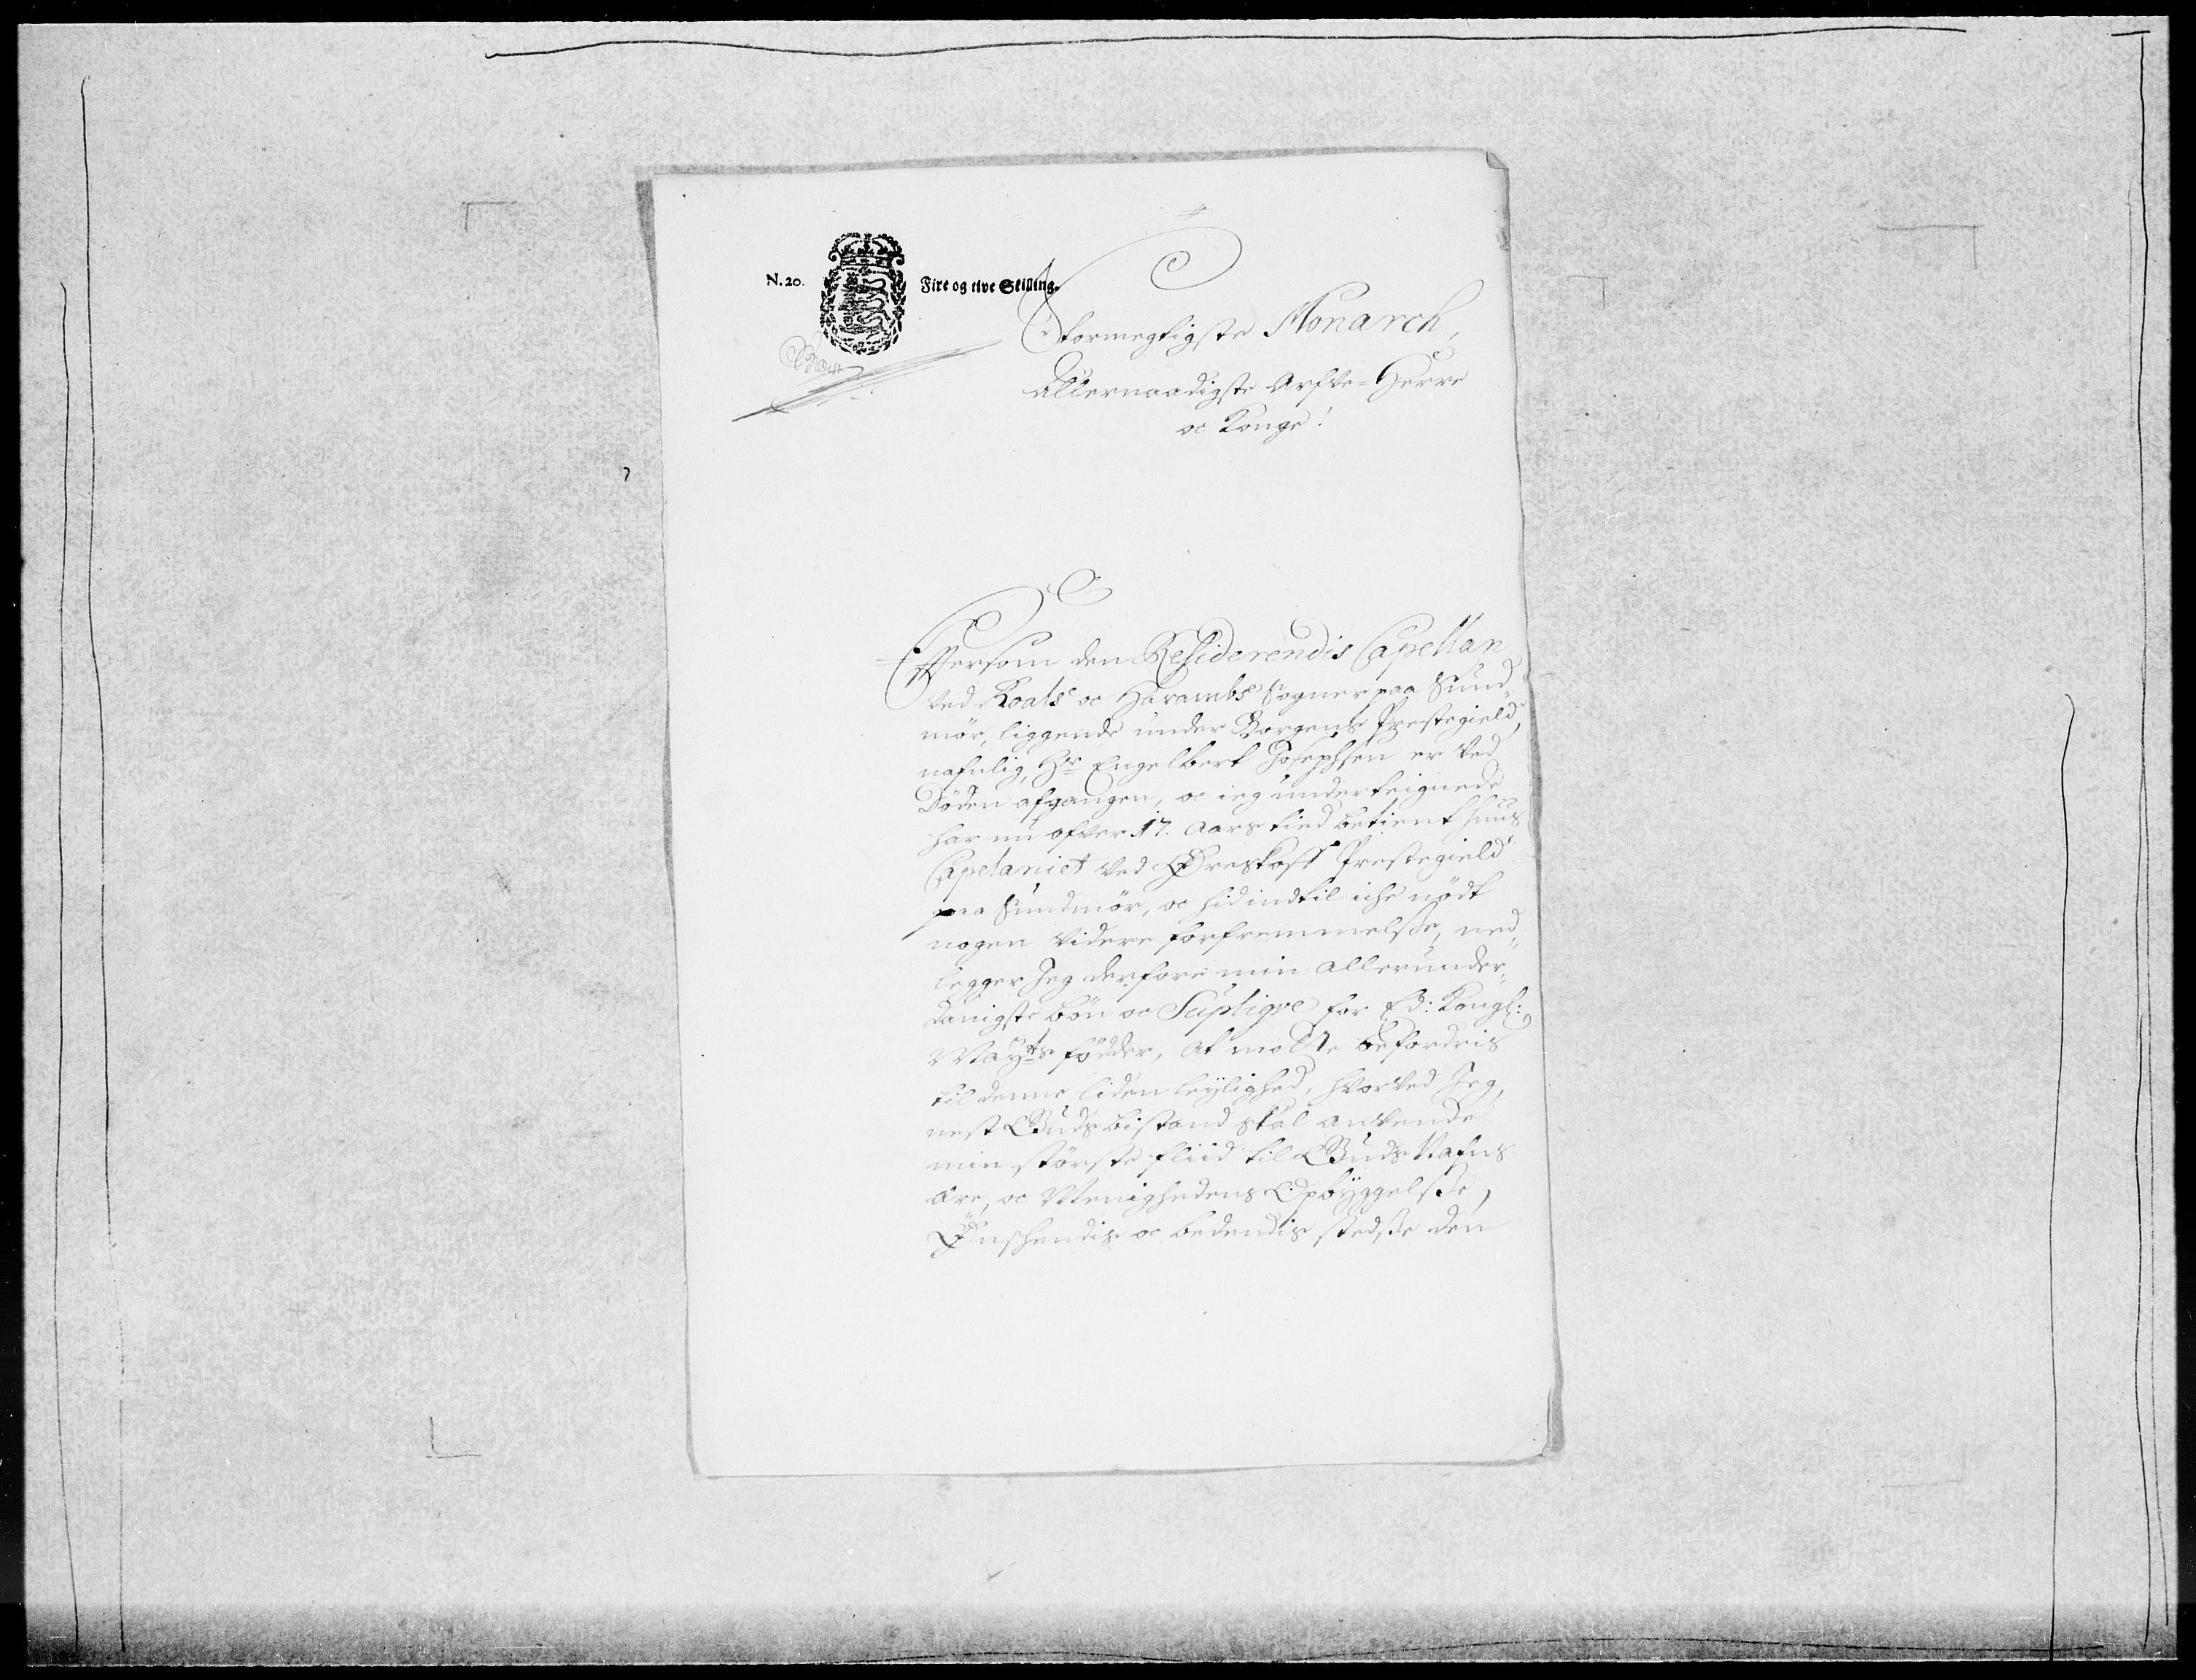 N. 20.
Fire og tive Skilling.
Stormegtigste Monarch,
Allernaadigste Arfve-Herre
oc Konge!
Effersom den Residerendis Capellan
ved Roals oc Harambs Sogner paa Sund-
mör, liggende under Borgens Prestegield,
nafnlig, Hr Engelbert Josephsen er ved
Döden afgangen, oc ieg underteignede
har nu ofver 17. aars tied betient huus
Capelaniet ved Øreskoff Prestegield
paa Sundmör, oc hid indtil iche nödt
nogen videre forfremmelsse, ned-
legger Jeg derfore min allerunder-
danigste bön oc Supliqve for Ed: Kongl:
Mayts födder, at motte befordris
til denne liden leylighed, hvorved Jeg,
nest Guds bistand skal anvende
min störste fliid til Guds Nafns
ære, oc Menighedens Opbyggelsse,
Ønschendis oc bedendis stedsse den